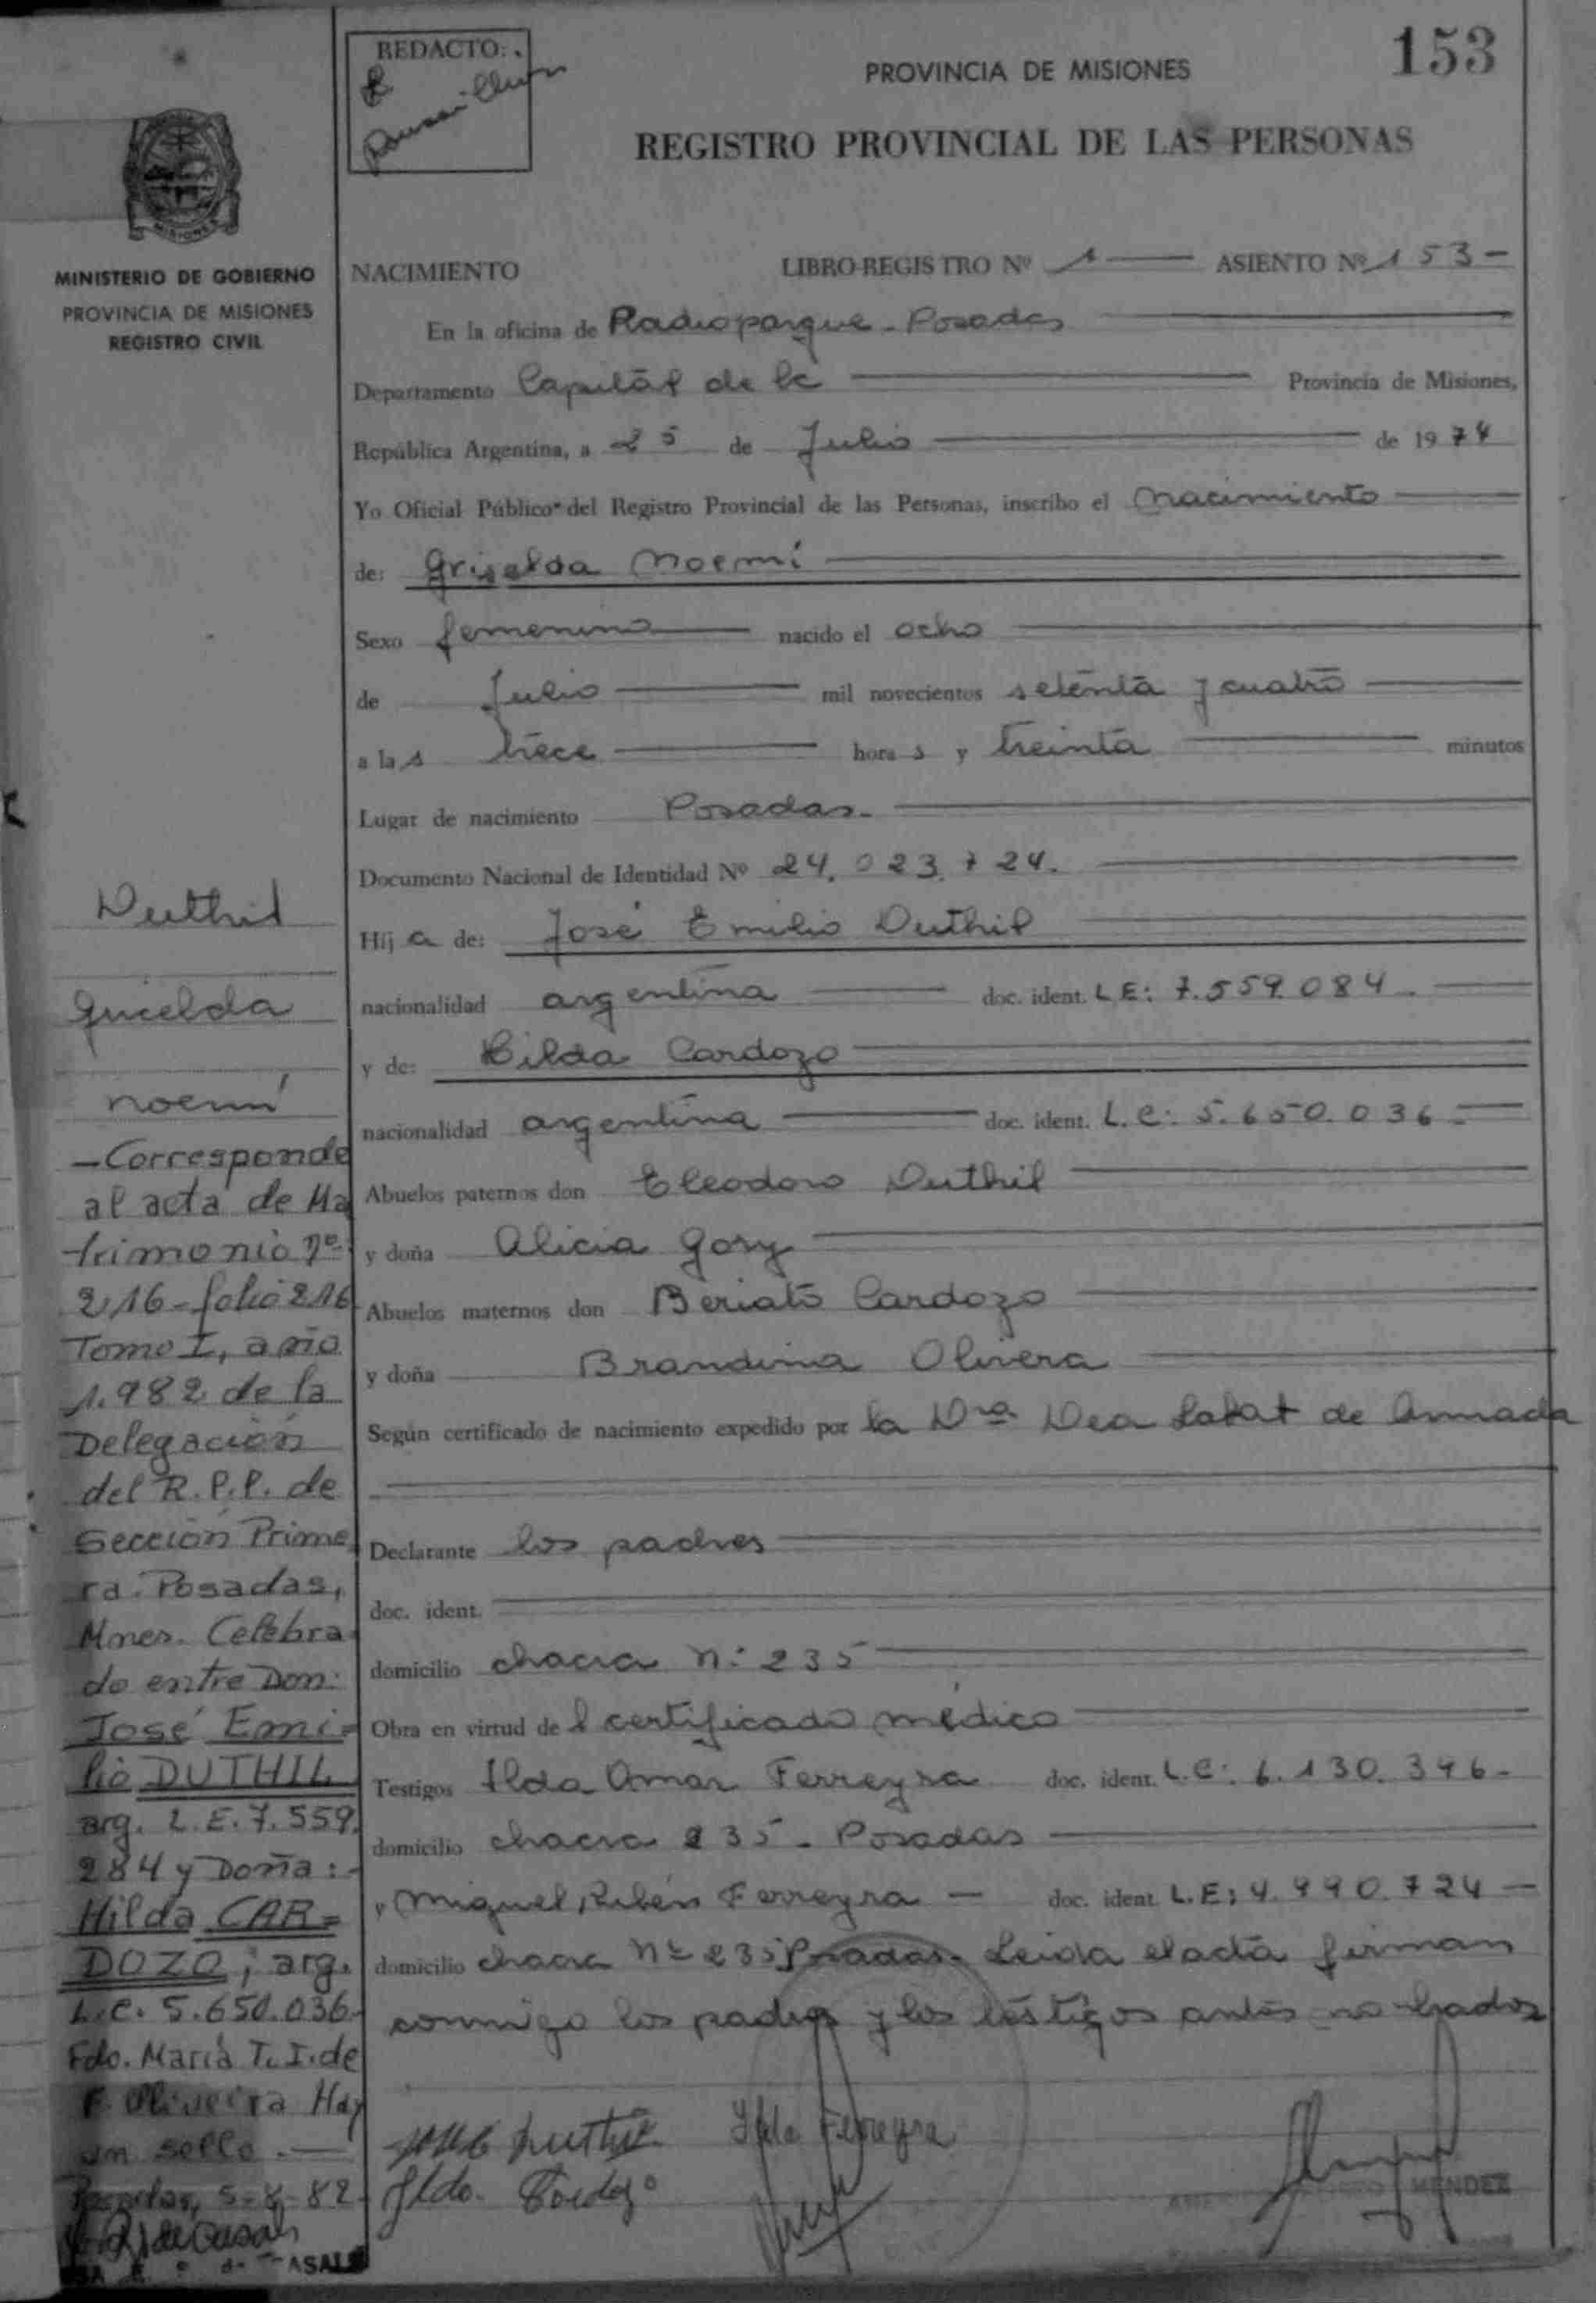 REDACTO:
PROVINCIA DE MISIONES
153
REGISTRO PROVINCIAL DE LAS PERSONAS
MISIONES
MINISTERIO DE GOBIERNO
PROVINCIA DE MISIONES
REGISTRO CIVIL
NACIMIENTO LIBRO-REGISTRO Nº 1 ASIENTO Nº 153-
En la oficina de Radioparque - Posadas
Departamento Capital de la Provincia de Misiones,
República Argentina, a 25 de Julio de 1974
Yo Oficial Público del Registro Provincial de las Personas, inscribo el nacimiento
de: Griselda Noemí
Sexo femenino nacido el ocho
de Julio mil novecientos setenta y cuatro
a las trece horas y treinta minutos
Lugar de nacimiento Posadas.
Documento Nacional de Identidad Nº 24.023.724.
Hija de: José Emilio Duthil
nacionalidad argentina doc. ident. LE: 7.559.084
y de: Hilda Cardozo
nacionalidad argentina doc. ident. L.C: 5.650.036
Abuelos paternos don Eleodoro Duthil
y doña Alicia Gory
Abuelos maternos don Beriato Cardozo
y doña Brandina Olivera
Según certificado de nacimiento expedido por la Dra Dea de Armada
Declarante los padres
doc. ident.
domicilio chacra n: 235
Obra en virtud del certificado médico
Testigos Ilda Omar Ferreyra doc. ident. L.C: 6.130.396-
domicilio chacra 235 - Posadas
y Miguel Rubén Ferreyra — doc. ident. L.E: 4.990.724 —
domicilio chacra Nº 235 Posadas. Leida el acta firman
conmigo los padres y los testigos antes nombrados
Duthil
Ilda Ferreyra
MENDEZ
Duthil
Griselda
Noemí
-Corresponde
al acta de Ma
trimonio nº
216 - folio 216
Tomo I, año
1.982 de la
Delegación
del R.P.P. de
Sección Prime
ra. Posadas,
Mnes. Celebra
do entre Don:
José Emi=
lio DUTHIL
arg. L.E. 7.559.
284 y Doña:-
Hilda CAR=
DOZO; arg.
L.C. 5.650.036-
Fdo. María T. I. de
F. Oliveira Hay
un sello.—
Posadas, 5-8-82